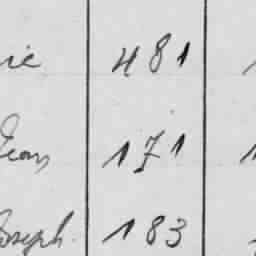 481
Jean 171
Joseph 183